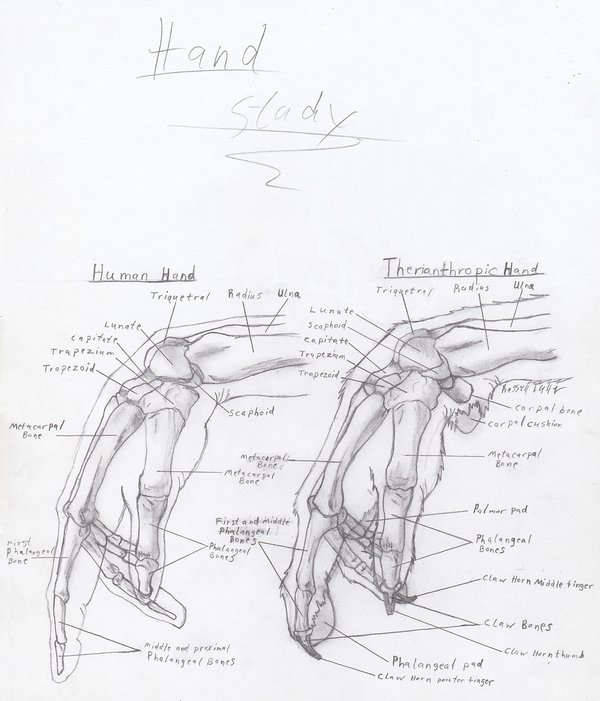 Hand
Study
Human Hand
Triquetral
Radius
Ulna
Lunate
Capitate
Trapezium
Trapezoid
Scaphoid
Metacarpal
Bone
Metacarpal
Bone
First
Phalangeal
Bone
Phalangeal
Bones
Middle and proximal
Phalangeal Bones
Therianthropic Hand
Triquetral
Radius
Ulna
Lunate
Scaphoid
Capitate
Trapezium
Trapezoid
Carpal bone
Carpal cushion
Metacarpal
Bone
Metacarpal
Bone
First and Middle
Phalangeal
Bones
Palmar pad
Phalangeal
Bones
Claw Horn Middle finger
Claw Bones
Claw Horn thumb
Phalangeal pad
Claw Horn pointer finger